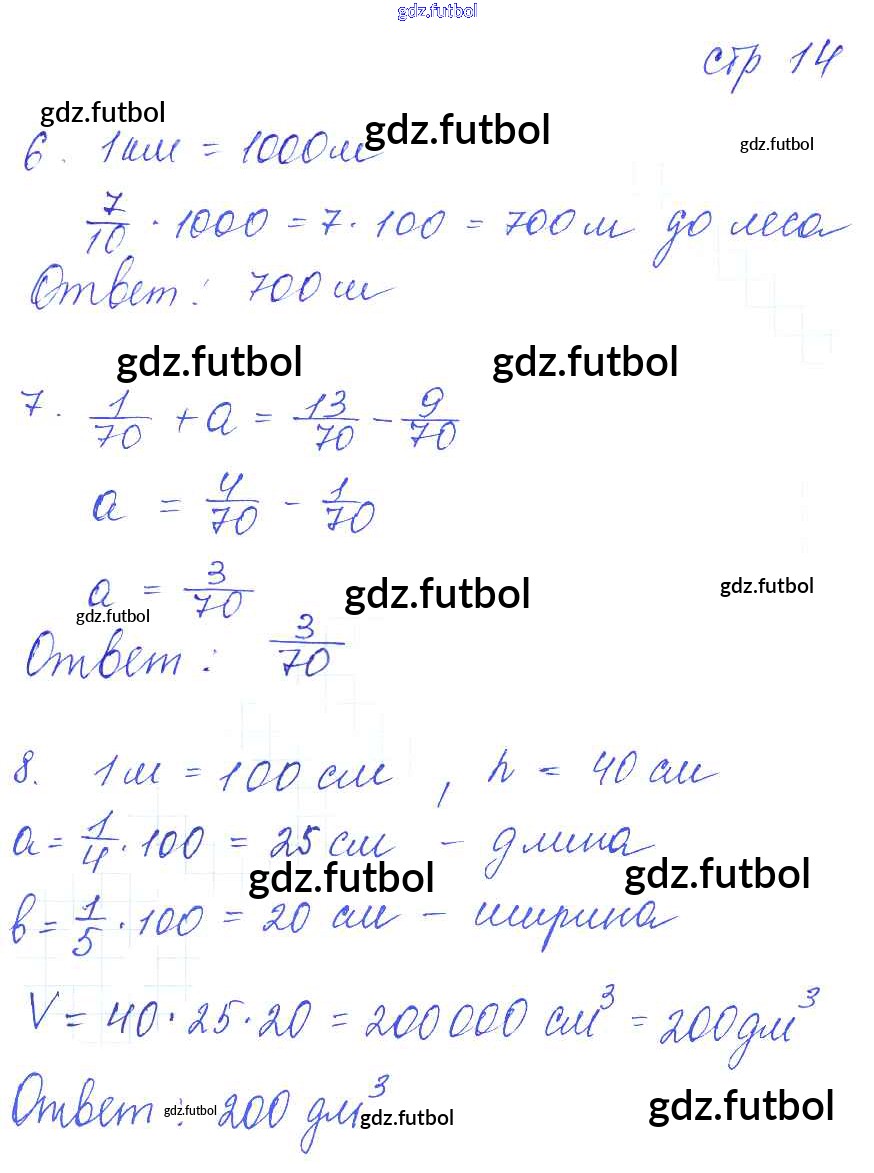 gdz.futbol
стр 14
gdz.futbol gdz.futbol gdz.futbol
6. 1км = 1000м
7/10 · 1000 = 7 · 100 = 700м до леса
Ответ: 700м
gdz.futbol gdz.futbol
7. 1/70 + a = 13/70 - 9/70
a = 4/70 - 1/70
a = 3/70
gdz.futbol gdz.futbol gdz.futbol
Ответ: 3/70
8. 1м = 100 см, h = 40 см
a = 1/4 · 100 = 25 см - длина
gdz.futbol gdz.futbol
b = 1/5 · 100 = 20 см - ширина
V = 40 · 25 · 20 = 200 000 см³ = 200 дм³
Ответ: 200 дм³
gdz.futbol gdz.futbol gdz.futbol